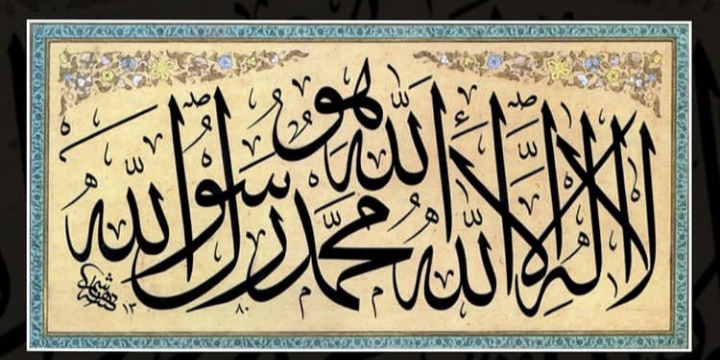 هو الله
لا اله الا الله محمد رسول الله
١٣٨٠